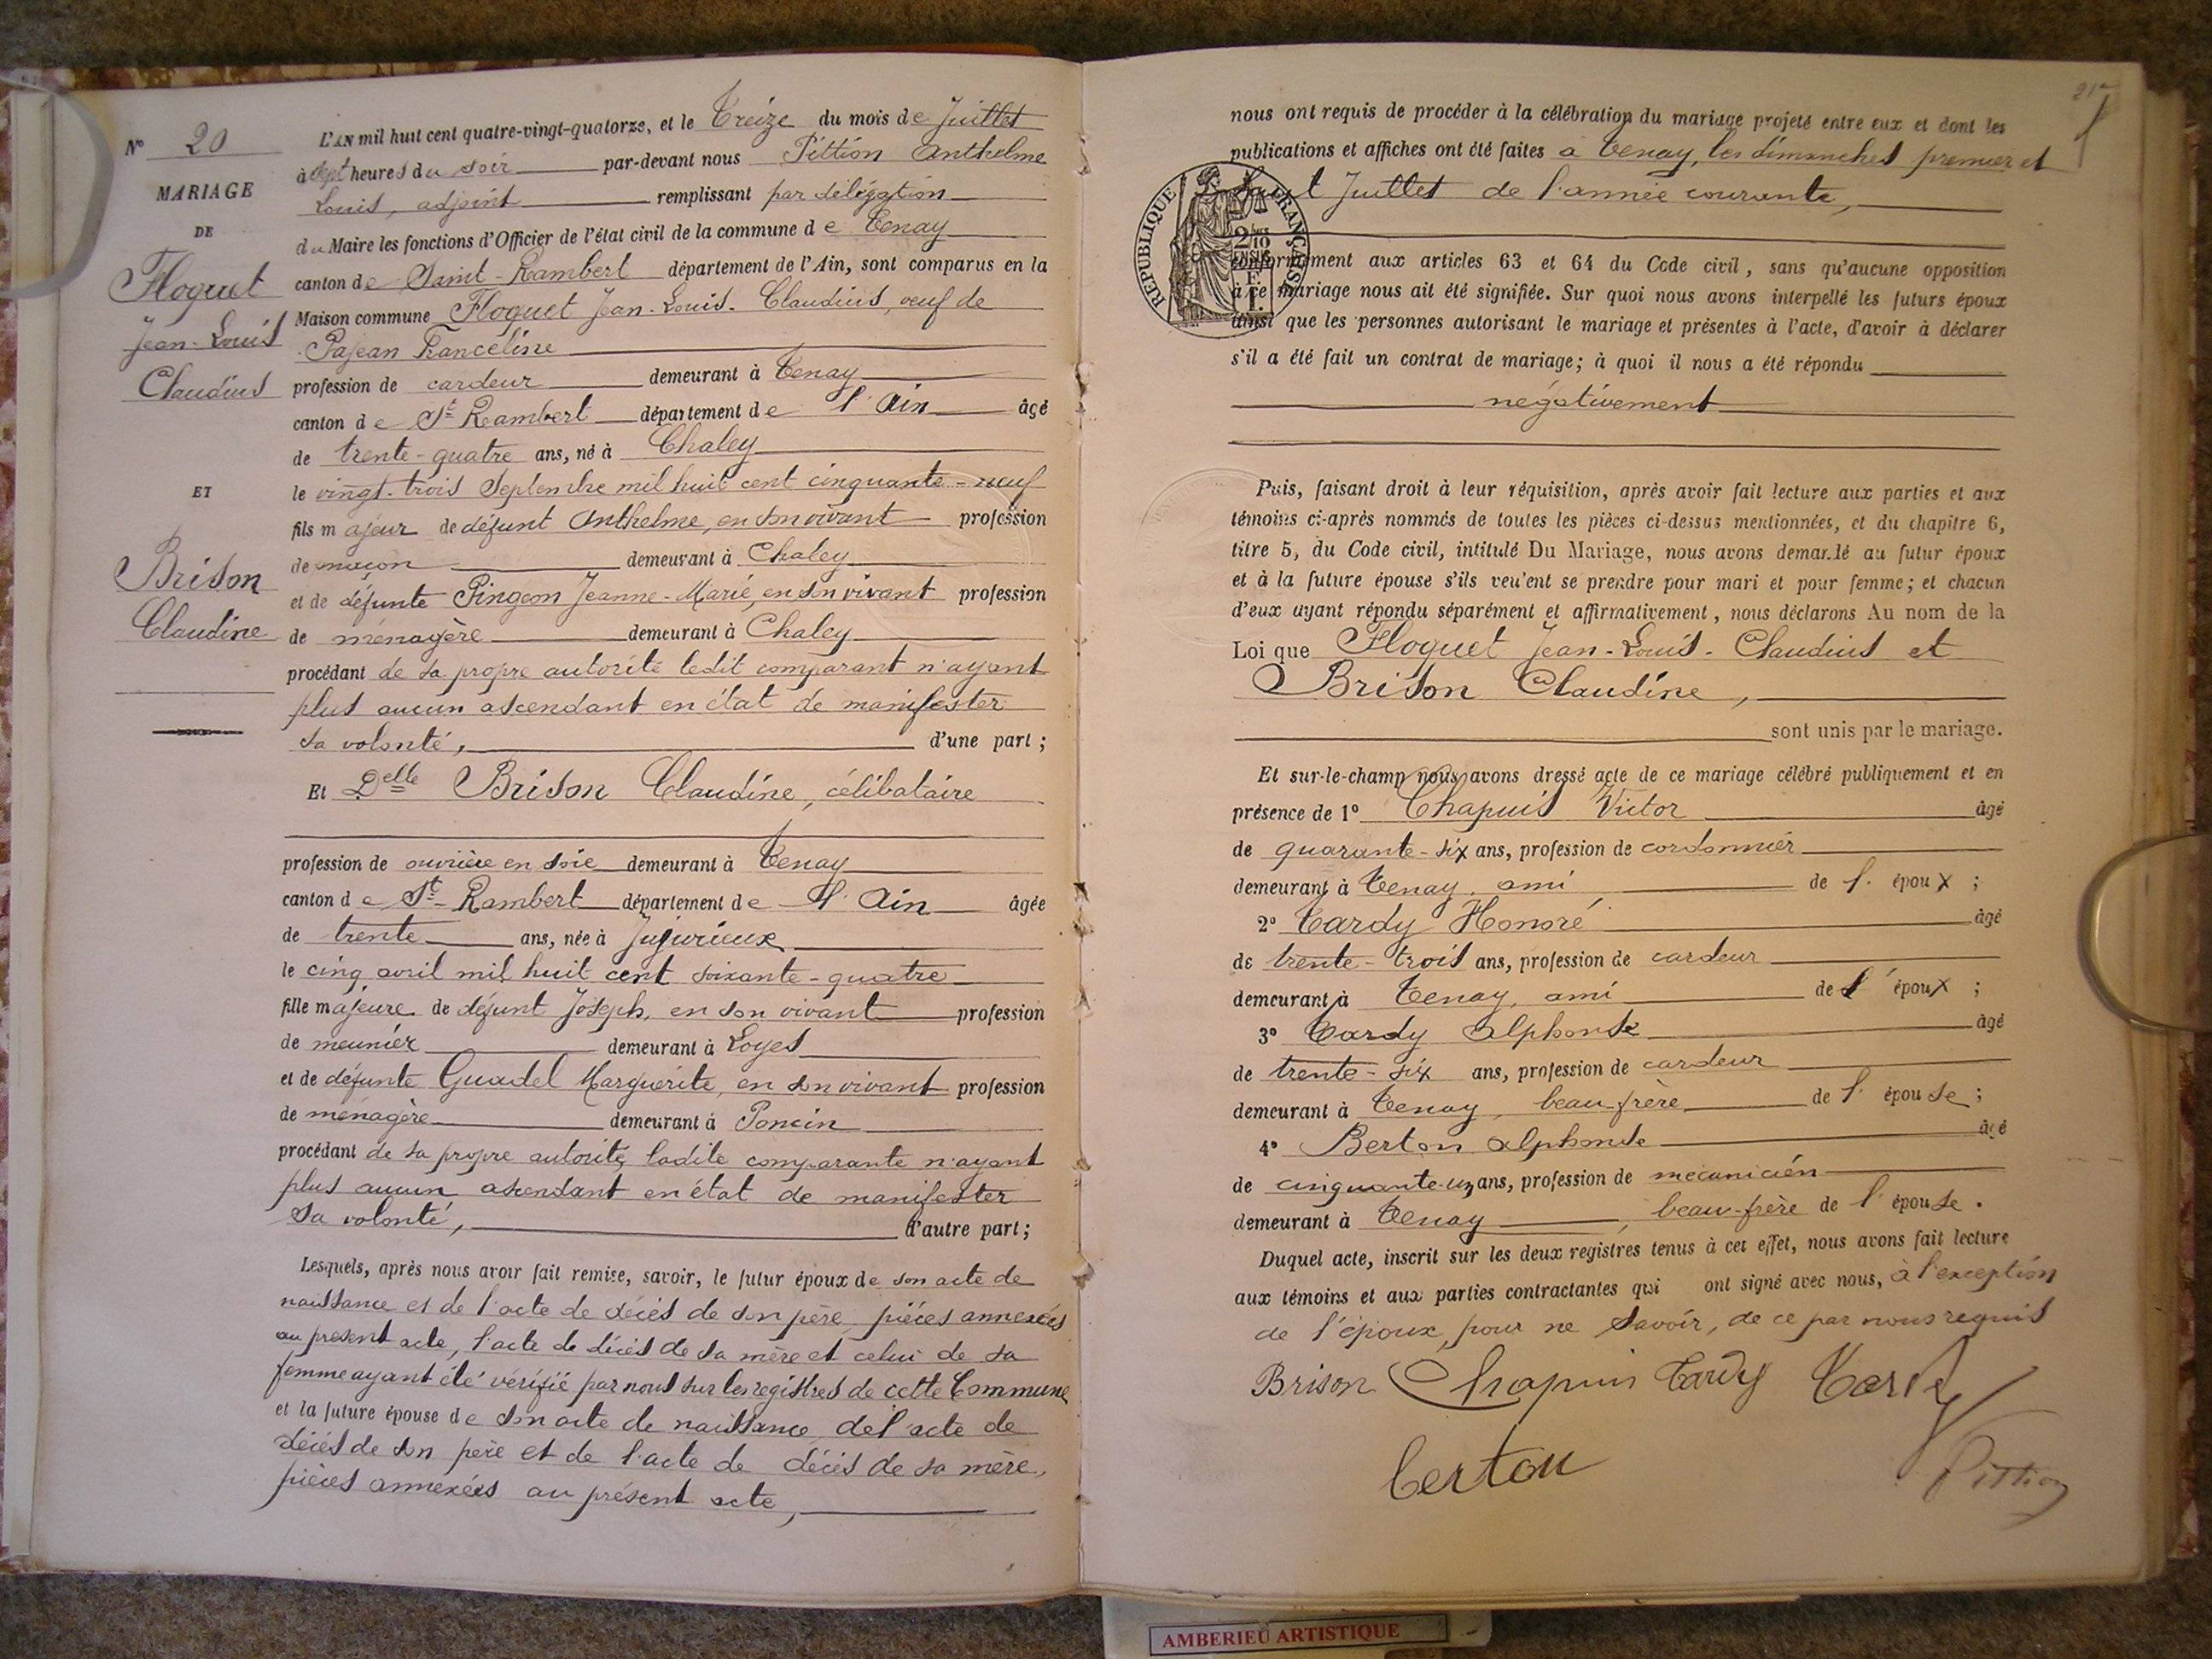 N° 20
MARIAGE
DE
Floquet
Jean-Louis
Claudius
ET
Brison
Claudine
L'AN mil huit cent quatre-vingt-quatorze, et le Treize du mois de Juillet
à sept heures du soir par-devant nous Pittion Anthelme
Louis, adjoint remplissant par délégation
du Maire les fonctions d'Officier de l'état civil de la commune de Tenay
canton de Saint-Rambert département de l'Ain, sont comparus en la
Maison commune Floquet Jean-Louis-Claudius, veuf de
Pajean Franceline
profession de cardeur demeurant à Tenay
canton de St Rambert département de l'Ain âgé
de trente-quatre ans, né à Chaley
le vingt-trois Septembre mil huit cent cinquante-neuf
fils majeur de défunt Anthelme, en son vivant profession
de maçon demeurant à Chaley
et de défunte Pingeon Jeanne-Marie, en son vivant profession
de ménagère demeurant à Chaley
procédant de sa propre autorité ledit comparant n'ayant
plus aucun ascendant en état de manifester
sa volonté, d'une part ;
Et Delle Brison Claudine, célibataire
profession de ouvrière en soie demeurant à Tenay
canton de St-Rambert département de l'Ain âgée
de trente ans, née à Jujurieux
le cinq avril mil huit cent soixante-quatre
fille majeure de défunt Joseph, en son vivant profession
de meunier demeurant à Loyes
et de défunte Guadel Marguerite, en son vivant profession
de ménagère demeurant à Poncin
procédant de sa propre autorité, ladite comparante n'ayant
plus aucun ascendant en état de manifester
sa volonté, d'autre part ;
Lesquels, après nous avoir fait remise, savoir, le futur époux de son acte de
naissance et de l'acte de décès de son père, pièces annexées
au présent acte, l'acte de décès de sa mère et celui de sa
femme ayant été vérifié par nous sur les registres de cette Commune
et la future épouse de son acte de naissance, de l'acte de
décès de son père et de l'acte de décès de sa mère,
pièces annexées au présent acte,
nous ont requis de procéder à la célébration du mariage projeté entre eux et dont les
publications et affiches ont été faites à Tenay, les dimanches premier et
huit Juillet de l'année courante,
RÉPUBLIQUE FRANÇAISE
2/10
EN SUS
conformément aux articles 63 et 64 du Code civil, sans qu'aucune opposition
à ce mariage nous ait été signifiée. Sur quoi nous avons interpellé les futurs époux
ainsi que les personnes autorisant le mariage et présentes à l'acte, d'avoir à déclarer
s'il a été fait un contrat de mariage ; à quoi il nous a été répondu
négativement
Puis, faisant droit à leur réquisition, après avoir fait lecture aux parties et aux
témoins ci-après nommés de toutes les pièces ci-dessus mentionnées, et du chapitre 6,
titre 5, du Code civil, intitulé Du Mariage, nous avons demandé au futur époux
et à la future épouse s'ils veulent se prendre pour mari et pour femme ; et chacun
d'eux ayant répondu séparément et affirmativement, nous déclarons Au nom de la
Loi que Floquet Jean-Louis-Claudius et
Brison Claudine,
sont unis par le mariage.
Et sur-le-champ nous avons dressé acte de ce mariage célébré publiquement et en
présence de 1° Chapuis Victor âgé
de quarante-six ans, profession de cordonnier
demeurant à Tenay, ami de l'époux ;
2° Tardy Honoré âgé
de trente-trois ans, profession de cardeur
demeurant à Tenay, ami de l'époux ;
3° Tardy Alphonse âgé
de trente-six ans, profession de cardeur
demeurant à Tenay, beau-frère de l'épouse ;
4° Berton Alphonse âgé
de cinquante-un ans, profession de mécanicien
demeurant à Tenay, beau-frère de l'épouse.
Duquel acte, inscrit sur les deux registres tenus à cet effet, nous avons fait lecture
aux témoins et aux parties contractantes qui ont signé avec nous, à l'exception
de l'époux, pour ne savoir, de ce par nous requis
Brison Chapuis Tardy Tardy
Berton
Pittion
AMBERIEU ARTISTIQUE